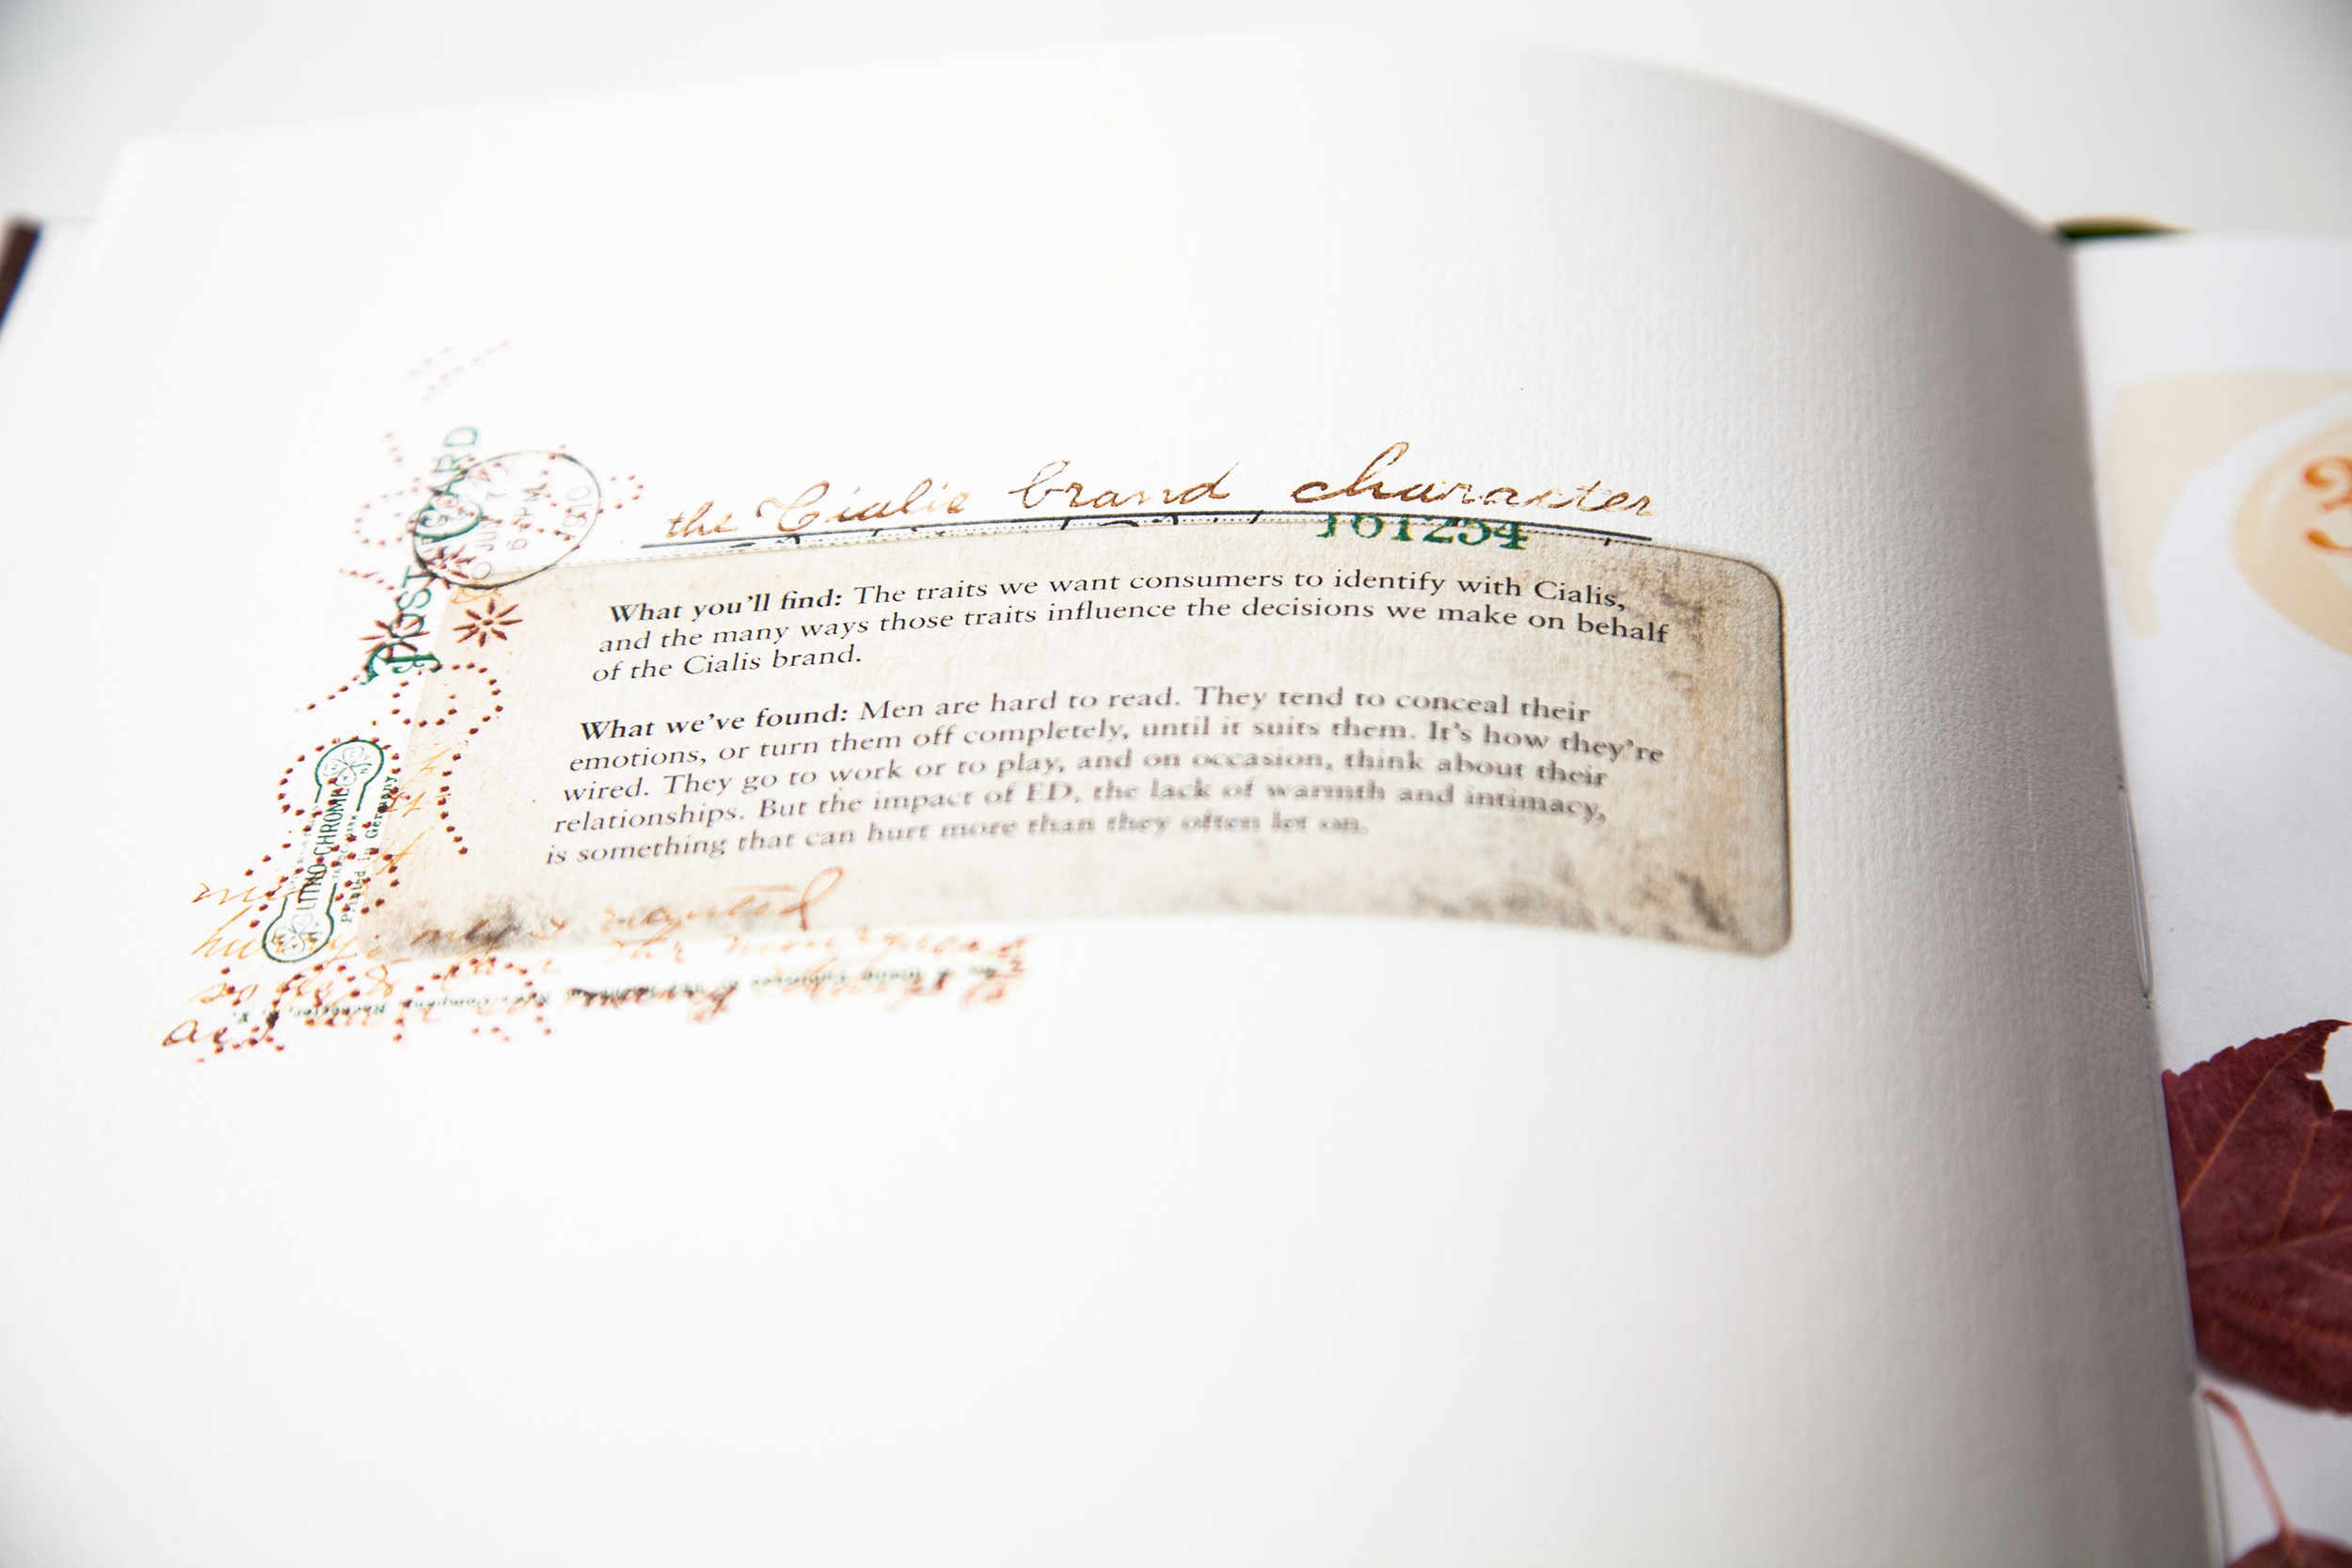 the Cialis brand character
101254
What you'll find: The traits we want consumers to identify with Cialis,
and the many ways those traits influence the decisions we make on behalf
of the Cialis brand.
What we've found: Men are hard to read. They tend to conceal their
emotions, or turn them off completely, until it suits them. It's how they're
wired. They go to work or to play, and on occasion, think about their
relationships. But the impact of ED, the lack of warmth and intimacy,
is something that can hurt more than they often let on.
POST CARD
6 PM
1910
LITHO-CHROME
Printed in Germany